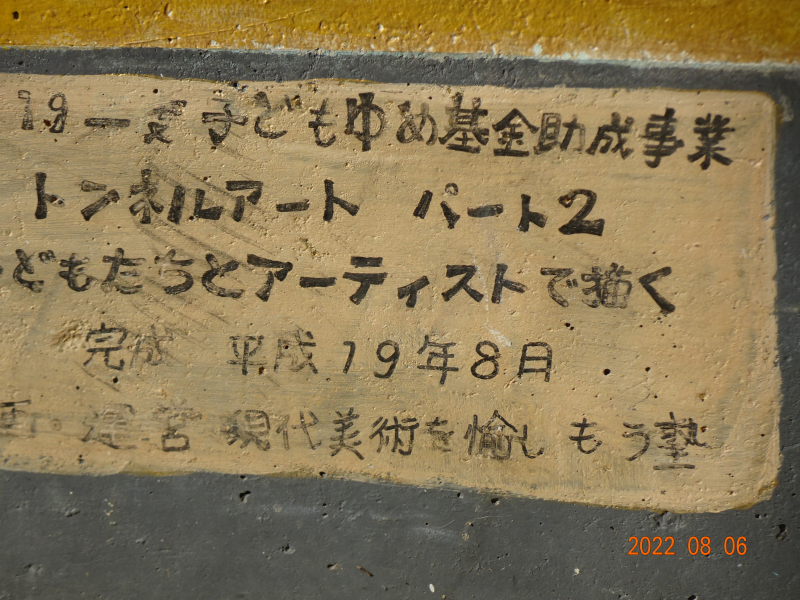 19年度 子どもゆめ基金助成事業
トンネルアート パート2
どもたちとアーティストで描く
完成 平成19年8月
画・運営 現代美術を愉しもう塾
2022 08 06